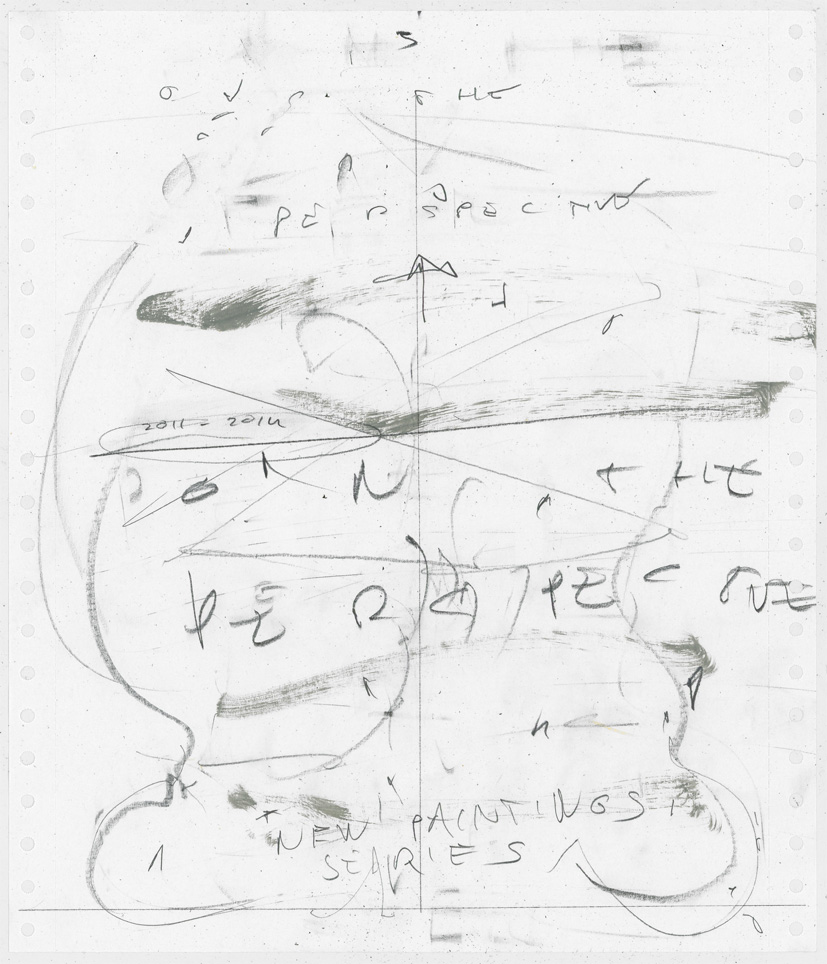 S
THE
PERSPECTIVE
2011-2014
ON THE
PERSPECTIVE
NEW PAINTINGS
SEARIES